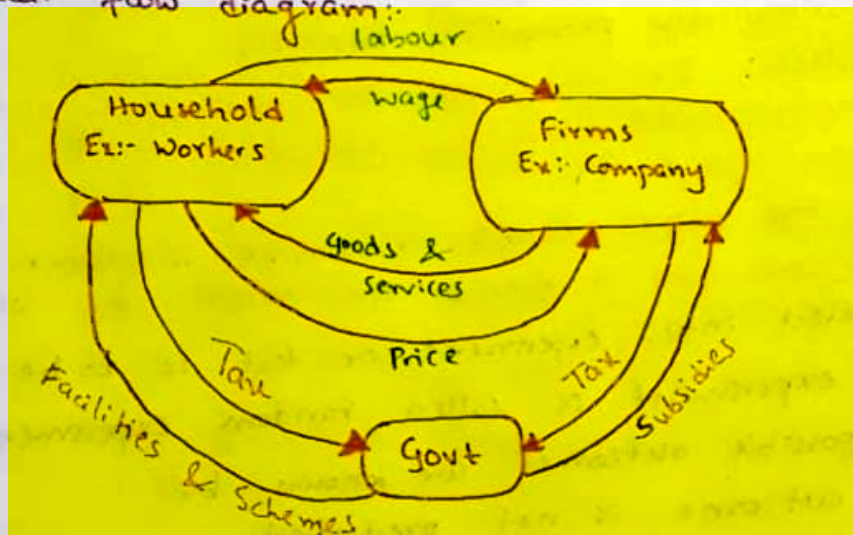 flow diagram:-
labour
wage
Household
Ex:- Workers
Firms
Ex:- Company
Goods &
Services
Price
Tax
Tax
Facilities & Schemes
Subsidies
Govt